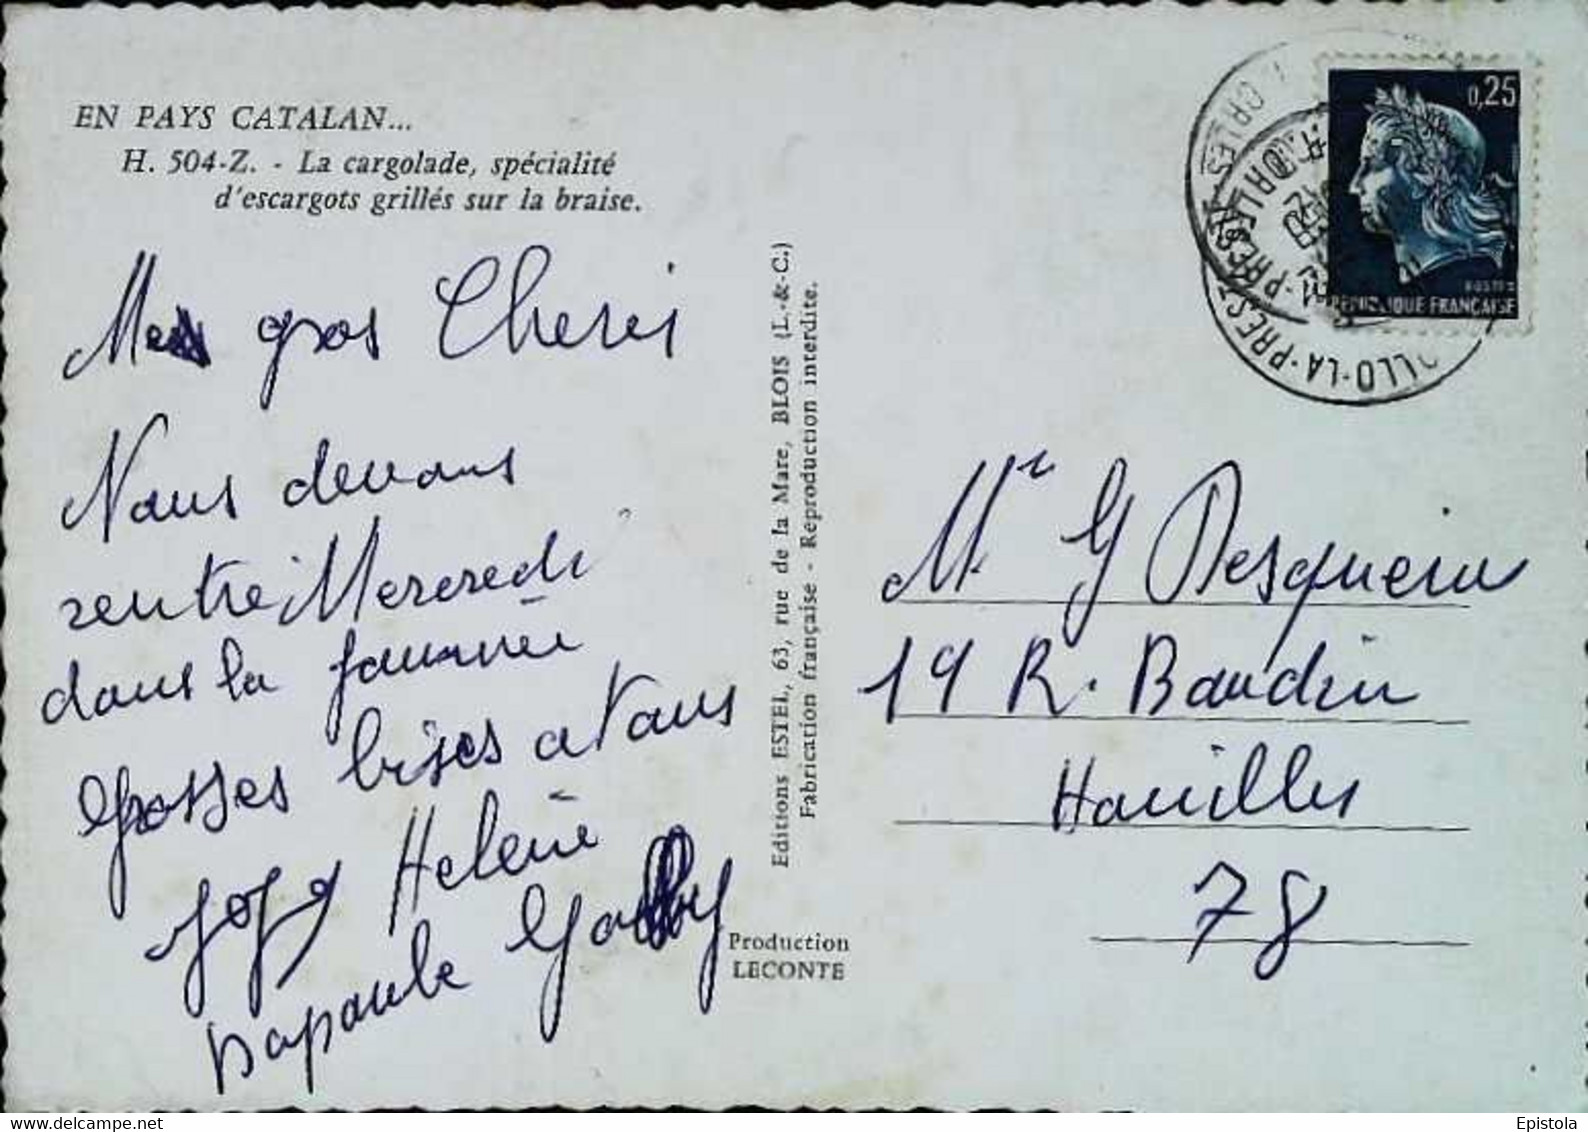 EN PAYS CATALAN...
H. 504-Z. - La cargolade, spécialité
d'escargots grillés sur la braise.
Mes gros Cheris
Nous devons
rentre Mercredi
dans la journnée
Grosses bises a Vous
Jojo Helene
Gaby
Editions ESTEL, 63, rue de la Mare, BLOIS (L.-&-C.)
Fabrication française - Reproduction interdite.
Production
LECONTE
0,25
POSTES
REPUBLIQUE FRANÇAISE
LLO-LA-PRESTE
Mr G Desquein
19 R. Baudin
Houilles
78
Epistola